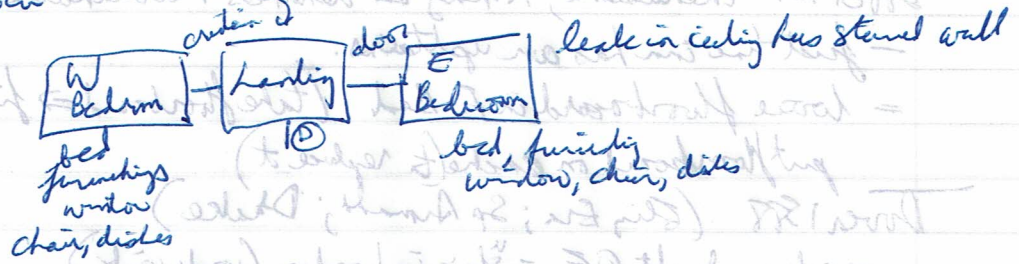 door
leak in ceiling has stained wall
W
Bedrm
Landing
E
Bedroom
D
bed
furnishings
window
chair, dishes
bed,
window, chair, dishes